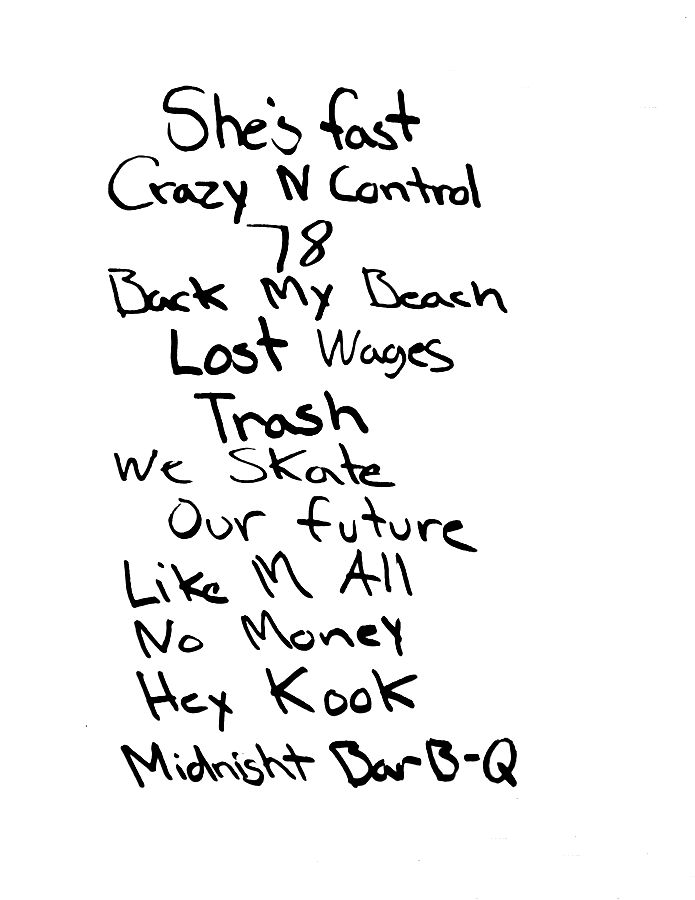 She's fast
Crazy N Control
78
Back My Beach
Lost Wages
Trash
We Skate
Our future
Like M All
No Money
Hey Kook
Midnight Bar-B-Q